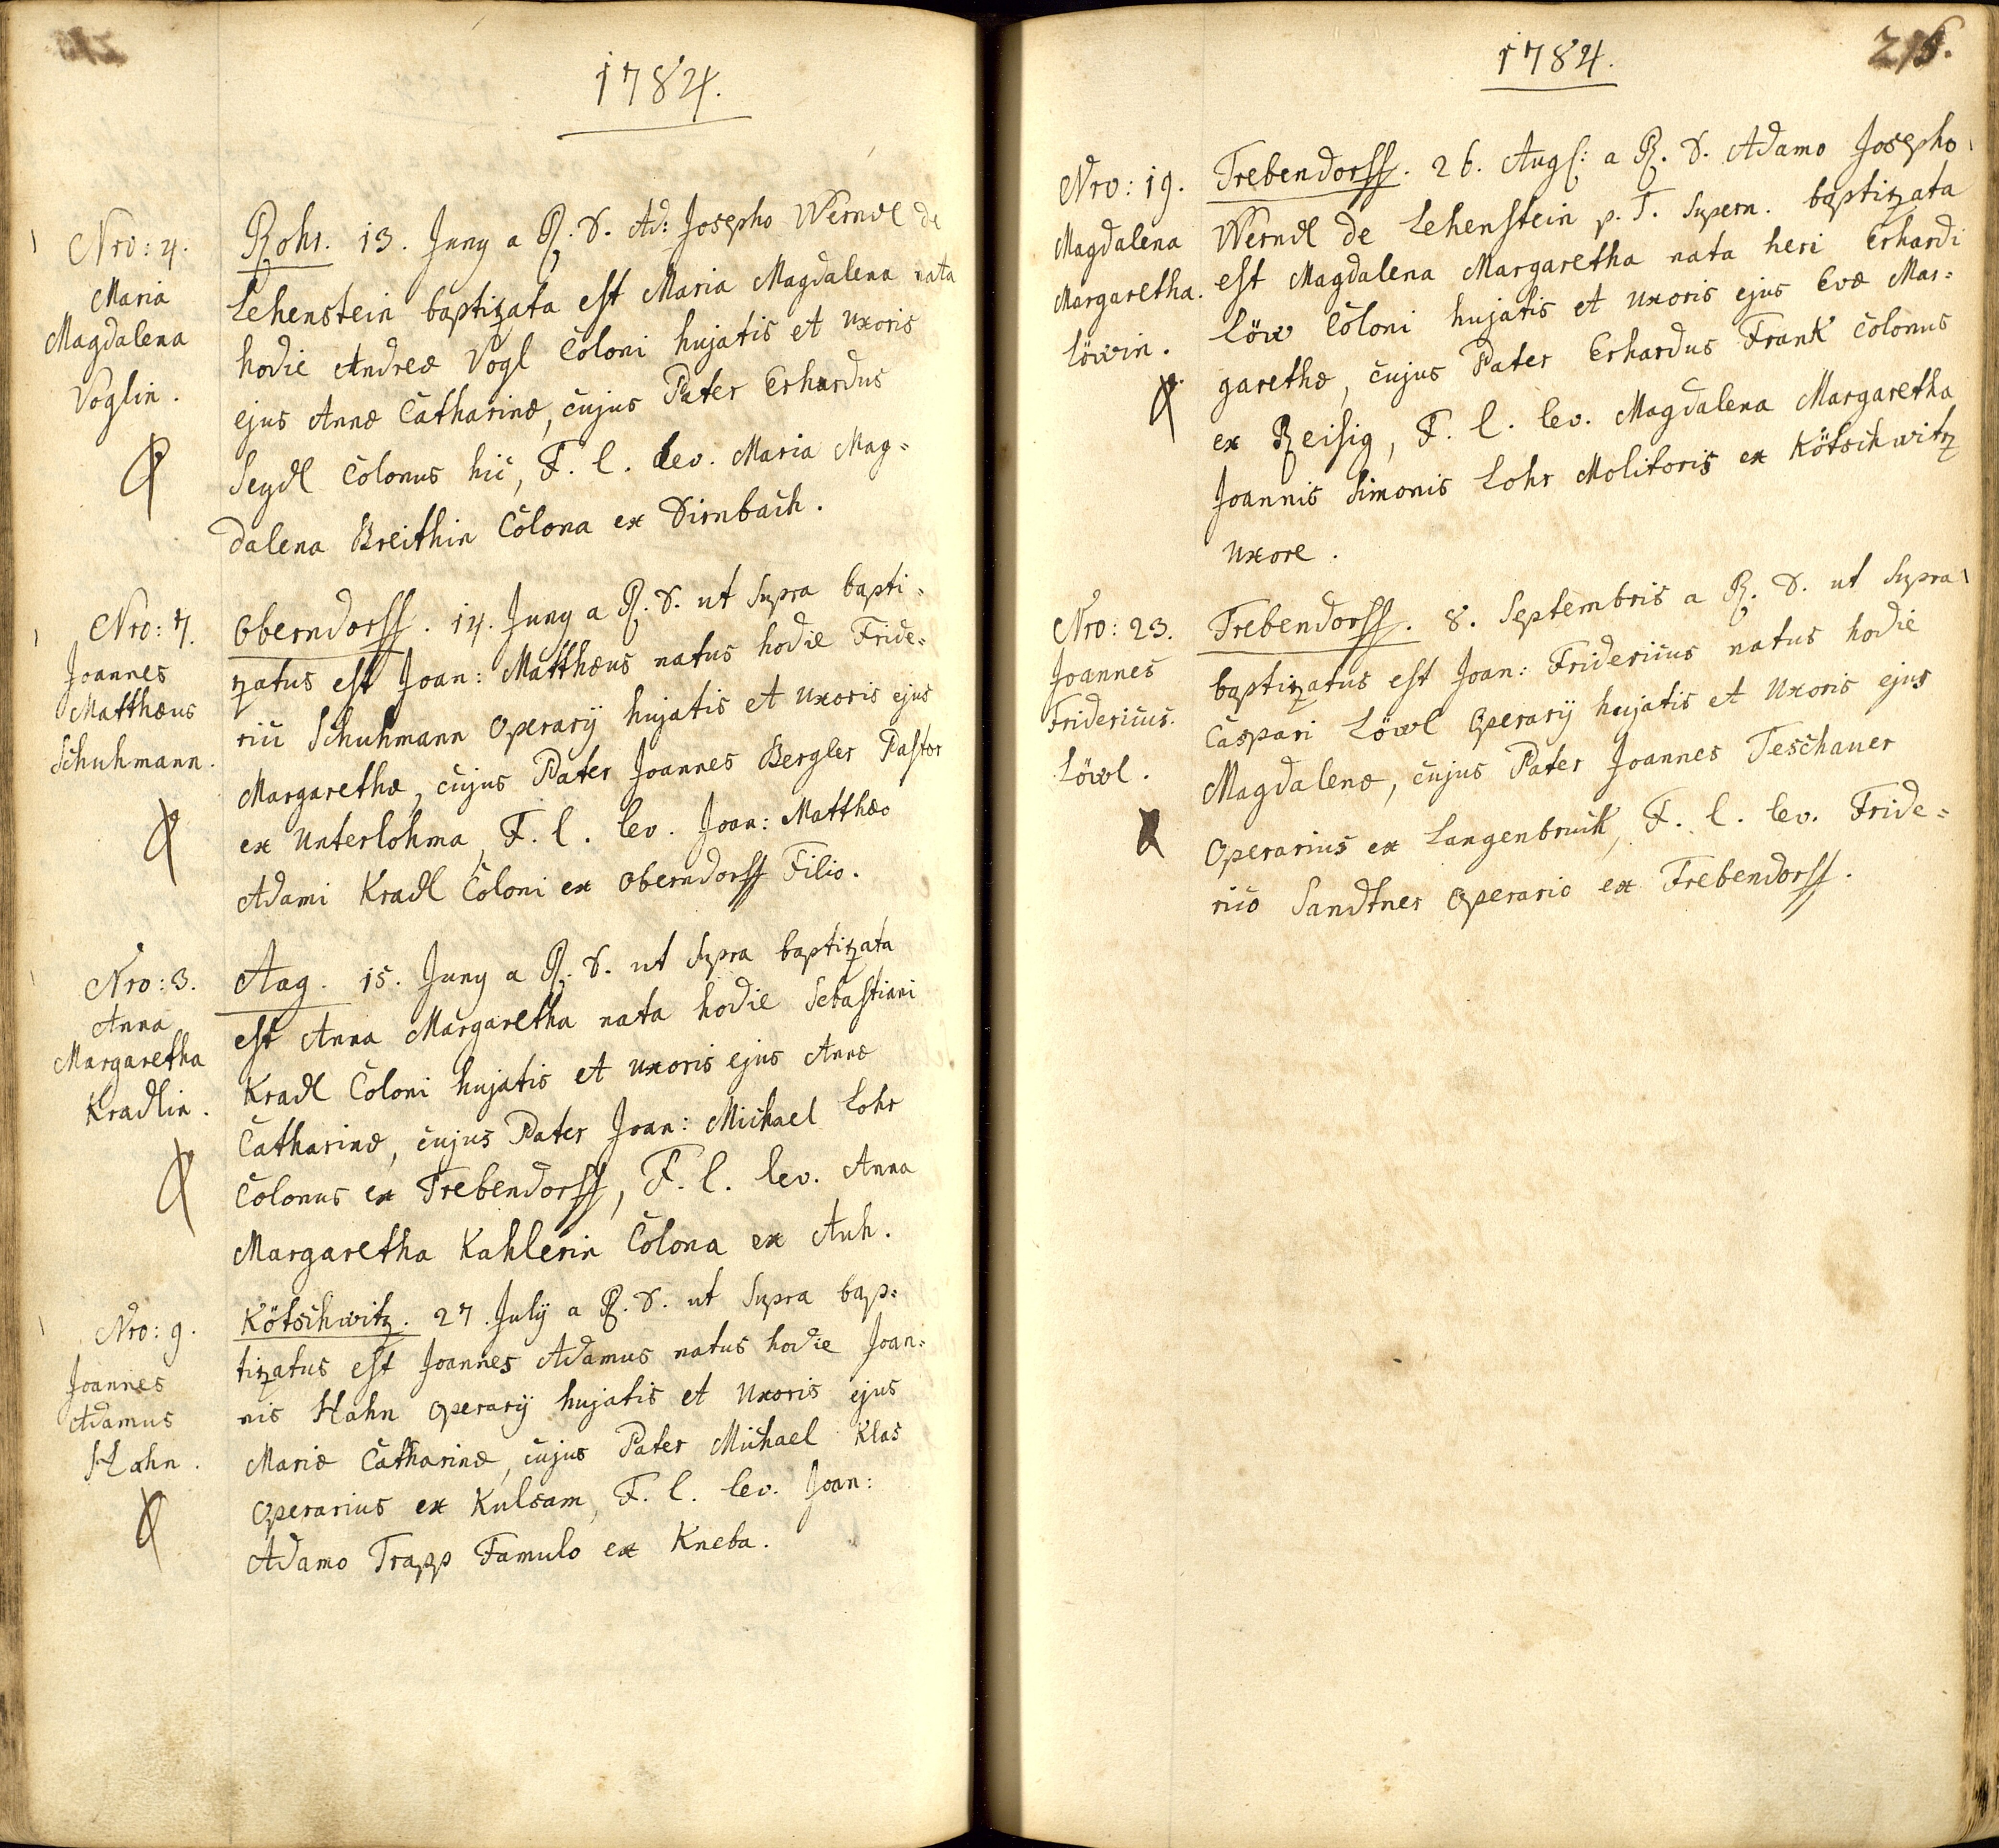 1784.
Nro: 4.
Maria
Magdalena
Voglin.
Rohr. 13. Juny a R. D. Ad: Josepho Werndl de
Lehenstein baptizata est Maria Magdalena nata
hodie Andreæ Vogl Coloni hujatis et uxoris
ejus Annæ Catharinæ, cujus Pater Erhardus
Seydl Colonus hic, F. l. lev. Maria Mag=
dalena Breithin Colona ex Dirnbach.
Nro: 7.
Joannes
Matthæus
Schuhmann.
Oberndorff. 14. Juny a R. D. ut supra bapti=
zatus est Joan: Matthæus natus hodie Fride=
rici Schuhmann Operarij hujatis et uxoris ejus
Margarethæ, cujus Pater Joannes Bergler Pastor
ex Unterlohma, F. l. lev. Joan: Matthæo
Adami Kradl Coloni ex Oberndorff Filio.
Nro: 3.
Anna
Margaretha
Kradlin.
Aag. 15. Juny a R. D. ut supra baptizata
est Anna Margaretha nata hodie Sebastiani
Kradl Coloni hujatis et uxoris ejus Annæ
Catharinæ, cujus Pater Joan: Michael Lohr
Colonus ex Trebendorff, F. l. lev. Anna
Margaretha Kahlerin Colona ex Auh.
Nro: 9.
Joannes
Adamus
Hahn.
Kötschwitz. 27. July a R. D. ut supra bap=
tizatus est Joannes Adamus natus hodie Joan=
nis Hahn Operarij hujatis et Uxoris ejus
Mariæ Catharinæ, cujus Pater Michael Klas
Operarius ex Kulsam, F. l. lev. Joan:
Adamo Trapp Famulo ex Kneba.
1784.
216.
Nro: 19.
Magdalena
Margaretha.
Löwin.
Trebendorff. 26. Augs: a R. D. Adamo Josepho
Werndl de Lehenstein p. T. Supern. baptizata
est Magdalena Margaretha nata heri Erhardi
Löw Coloni hujatis et uxoris ejus Evæ Mar=
garethæ, cujus Pater Erhardus Frank Colonus
ex Reisig, F. l. lev. Magdalena Margaretha
Joannis Simonis Lohr Molitoris ex Kötschwitz
uxore.
Nro: 23.
Joannes
Fridericus.
Löwl.
Trebendorff. 8. Septembris a R. D. ut supra
baptizatus est Joan: Fridericus natus hodie
Caspari Löwl Operarij hujatis et Uxoris ejus
Magdalenæ, cujus Pater Joannes Teschauer
Operarius ex Langenbruck, F. l. lev. Fride=
rico Sandtner Operario ex Trebendorff.